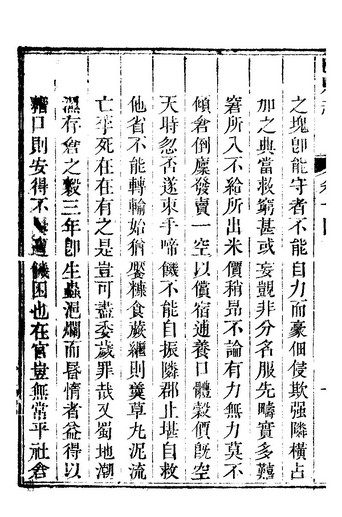 之塊即能守者不能自力而豪佃侵欺强隣橫占
加之典當救窮甚或妄覬非分名服先疇實多囏
窘所入不給所出米價稍昻不論有力無力莫不
傾倉倒廩發賣一空以償宿逋養口體穀價旣空
天時忽否遂束手啼饑不能自振隣郡止堪自救
他省不能轉輸始猶饜糠食蕨繼則糞草丸泥流
亡李死在在有之是豈可盡委歲罪哉又蜀地潮
溼存倉之穀三年卽生蟲浥爛而昬惰者益得以
藉口則安得不遭饑困也在官豈無常平社倉